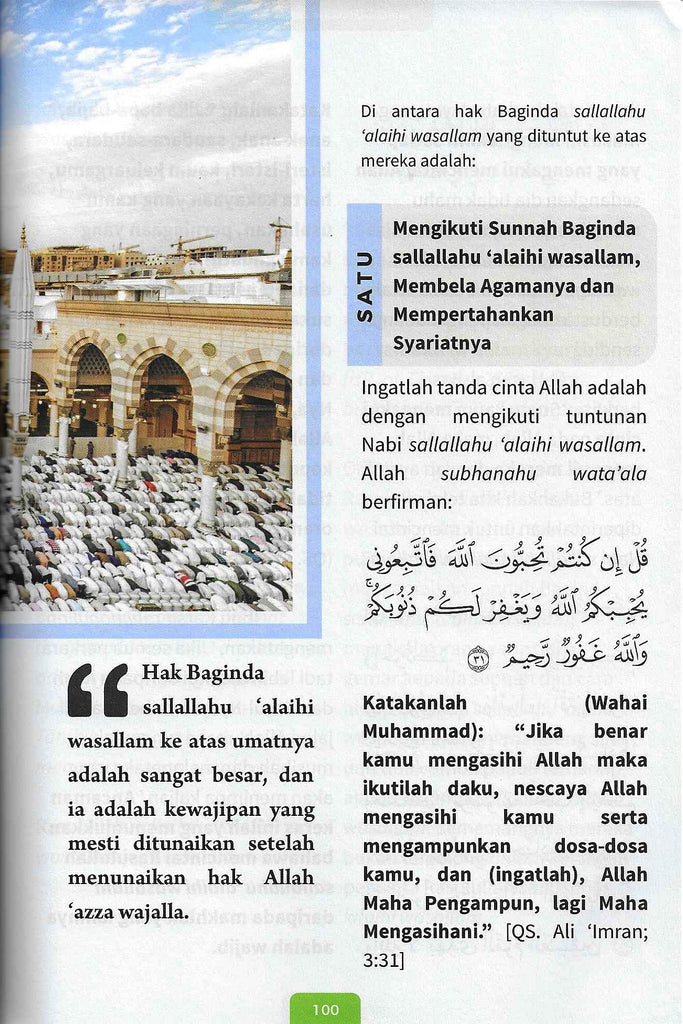 Di antara hak Baginda sallallahu
‘alaihi wasallam yang dituntut ke atas
mereka adalah:
SATU
Mengikuti Sunnah Baginda
sallallahu ‘alaihi wasallam,
Membela Agamanya dan
Mempertahankan
Syariatnya
Ingatlah tanda cinta Allah adalah
dengan mengikuti tuntunan
Nabi sallallahu ‘alaihi wasallam.
Allah subhanahu wata’ala
berfirman:
قُلْ إِن كُنتُمْ تُحِبُّونَ ٱللَّهَ فَٱتَّبِعُونِى
يُحْبِبْكُمُ ٱللَّهُ وَيَغْفِرْ لَكُمْ ذُنُوبَكُمْ ۗ
وَٱللَّهُ غَفُورٌ رَّحِيمٌ ٣١
Katakanlah (Wahai
Muhammad): “Jika benar
kamu mengasihi Allah maka
ikutilah daku, nescaya Allah
mengasihi kamu serta
mengampunkan dosa-dosa
kamu, dan (ingatlah), Allah
Maha Pengampun, lagi Maha
Mengasihani.” [QS. Ali ‘Imran;
3:31]
“ Hak Baginda
sallallahu ‘alaihi
wasallam ke atas umatnya
adalah sangat besar, dan
ia adalah kewajipan yang
mesti ditunaikan setelah
menunaikan hak Allah
‘azza wajalla.
100